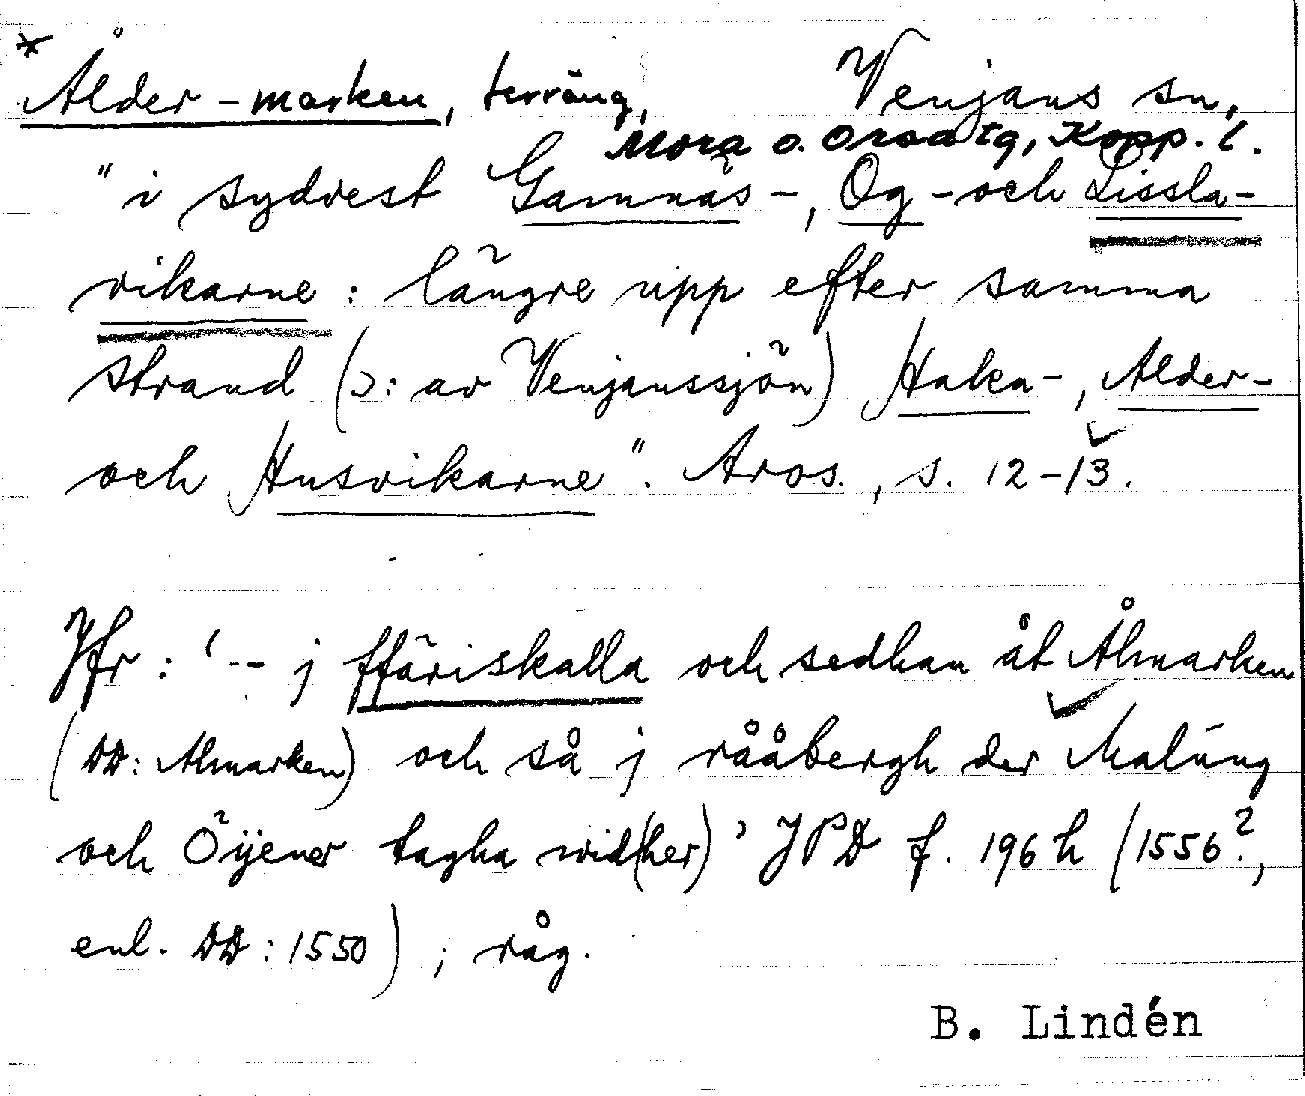 * Ålder-marken, terräng, Venjans sn,
Mora o. Orsa tg, Kopp. l.
"i sydvest Gamnäs-, Og- och Lissla-
vikarne: längre upp efter samma
strand (ɔ: av Venjanssjön) Haka-, Alder-
och Husvikarne". Aros., s. 12-13.
Jfr: '-- j ffäriskalla och sedhan åt Ålmarken
(DD: Almarken) och så j rååbergh der Malung
och Öijener tagha wid(her)' JPD f. 196 h (1556?,
enl. DD: 1550); råg.
B. Lindén